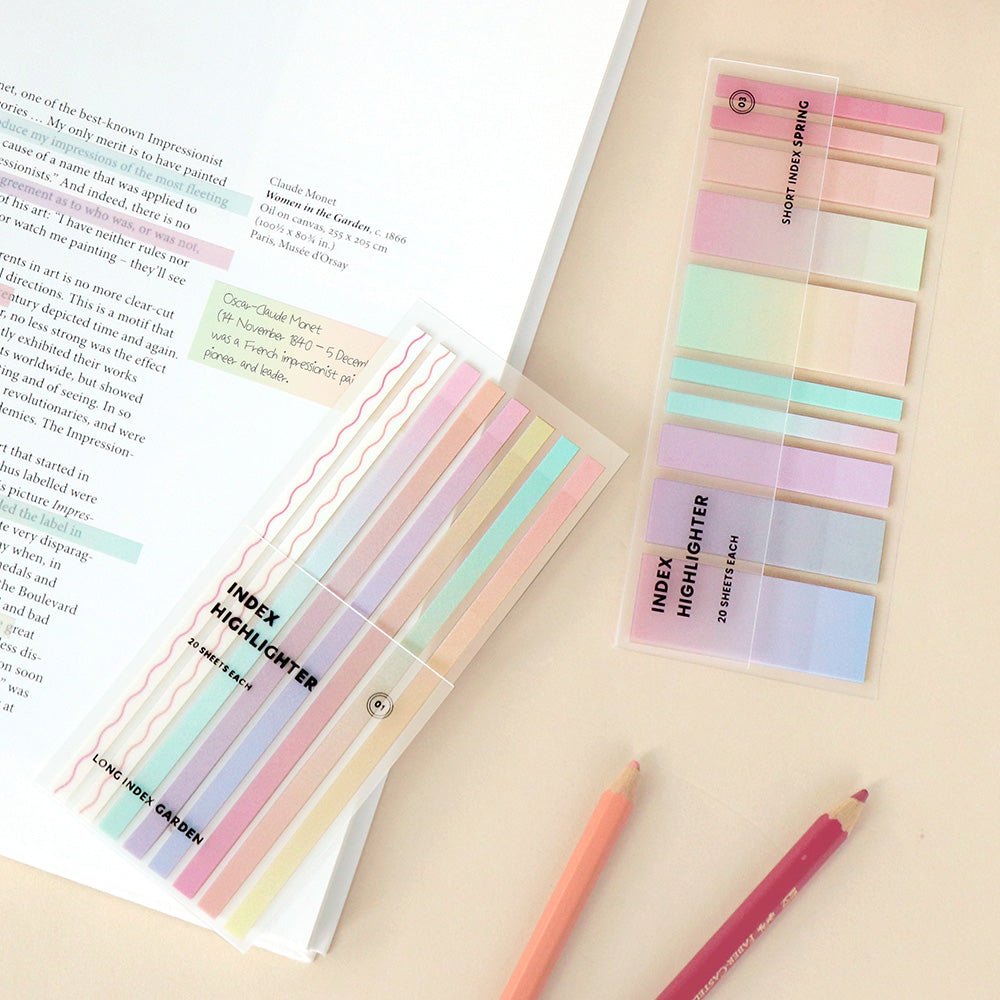 net, one of the best-known Impressionist
ories ... My only merit is to have painted
oduce my impressions of the most fleeting
cause of a name that was applied to
essionists." And indeed, there is no
agreement as to who was, or was not,
of his art: "I have neither rules nor
or watch me painting – they'll see
rents in art is no more clear-cut
l directions. This is a motif that
entury depicted time and again.
r, no less strong was the effect
tly exhibited their works
ts worldwide, but showed
ting and of seeing. In so
revolutionaries, and were
demies. The Impression-
ort that started in
thus labelled were
s picture Impres-
led the label in
te very disparag-
ay when, in
nedals and
he Boulevard
and bad
great
ess dis-
on soon
" was
at
Claude Monet
Women in the Garden, c. 1866
Oil on canvas, 255 x 205 cm
(100½ x 80¾ in.)
Paris, Musée d'Orsay
Oscar-Claude Monet
(14 November 1840 – 5 Decem
was a French impressionist pai
pioneer and leader.
INDEX
HIGHLIGHTER
20 SHEETS EACH
01
LONG INDEX GARDEN
03
SHORT INDEX SPRING
INDEX
HIGHLIGHTER
20 SHEETS EACH
FABER-CASTEL